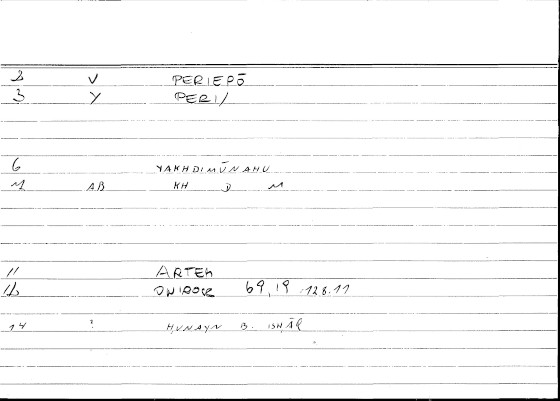 2 V PERIEPŌ
3 Y PERI/
6 YAKHDIMŪNAHU
M AB KH D M
11 ARTEM
ONIROCR 69,19 128.11
14 ? HUNAYN B. ISHĀQ